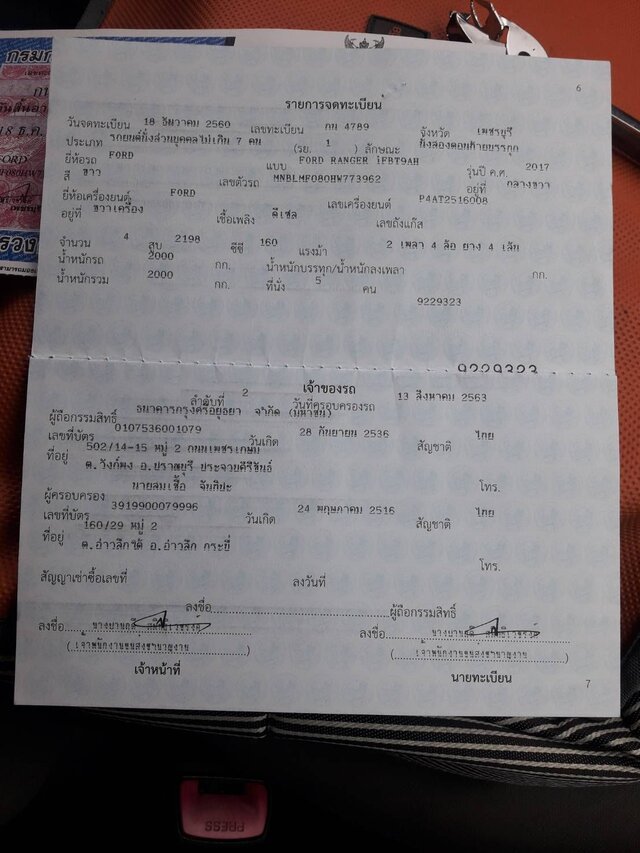 กรมการ
18 ธ.ค.
FORD
6
รายการจดทะเบียน
วันจดทะเบียน 18 ธันวาคม 2560 เลขทะเบียน กน 4789 จังหวัด เพชรบุรี
ประเภท รถยนต์นั่งส่วนบุคคลไม่เกิน 7 คน (รย. 1 ) ลักษณะ นั่งสองตอนท้ายบรรทุก
ยี่ห้อรถ FORD แบบ FORD RANGER iFBT9AH รุ่นปี ค.ศ. 2017
สี ขาว เลขตัวรถ MNBLMF080HW773962 อยู่ที่ กลางขวา
ยี่ห้อเครื่องยนต์ FORD เลขเครื่องยนต์ P4AT2516008
อยู่ที่ ขวาเครื่อง เชื้อเพลิง ดีเซล เลขถังแก๊ส
จำนวน 4 สูบ 2198 ซีซี 160 แรงม้า 2 เพลา 4 ล้อ ยาง 4 เส้น
น้ำหนักรถ 2000 กก. น้ำหนักบรรทุก/น้ำหนักลงเพลา กก.
น้ำหนักรวม 2000 กก. ที่นั่ง 5 คน
9229323
9229323
เจ้าของรถ
ลำดับที่ 2 วันที่ครอบครองรถ 13 สิงหาคม 2563
ผู้ถือกรรมสิทธิ์ ธนาคารกรุงศรีอยุธยา จำกัด (มหาชน)
เลขที่บัตร 0107536001079 วันเกิด 28 กันยายน 2536 สัญชาติ ไทย
ที่อยู่ 502/14-15 หมู่ 2 ถนนเพชรเกษม
ต.วังก์พง อ.ปราณบุรี ประจวบคีรีขันธ์
โทร.
ผู้ครอบครอง นายสมเชื้อ
เลขที่บัตร 3919900079996 วันเกิด 24 พฤษภาคม 2516 สัญชาติ ไทย
ที่อยู่ 160/29 หมู่ 2
ต.อ่าวลึกใต้ อ.อ่าวลึก กระบี่
โทร.
สัญญาเช่าซื้อเลขที่ ลงวันที่
ลงชื่อ ผู้ถือกรรมสิทธิ์
ลงชื่อ ลงชื่อ
(เจ้าพนักงานขนส่งชำนาญงาน) (เจ้าพนักงานขนส่งชำนาญงาน)
เจ้าหน้าที่ นายทะเบียน
7
PRESS